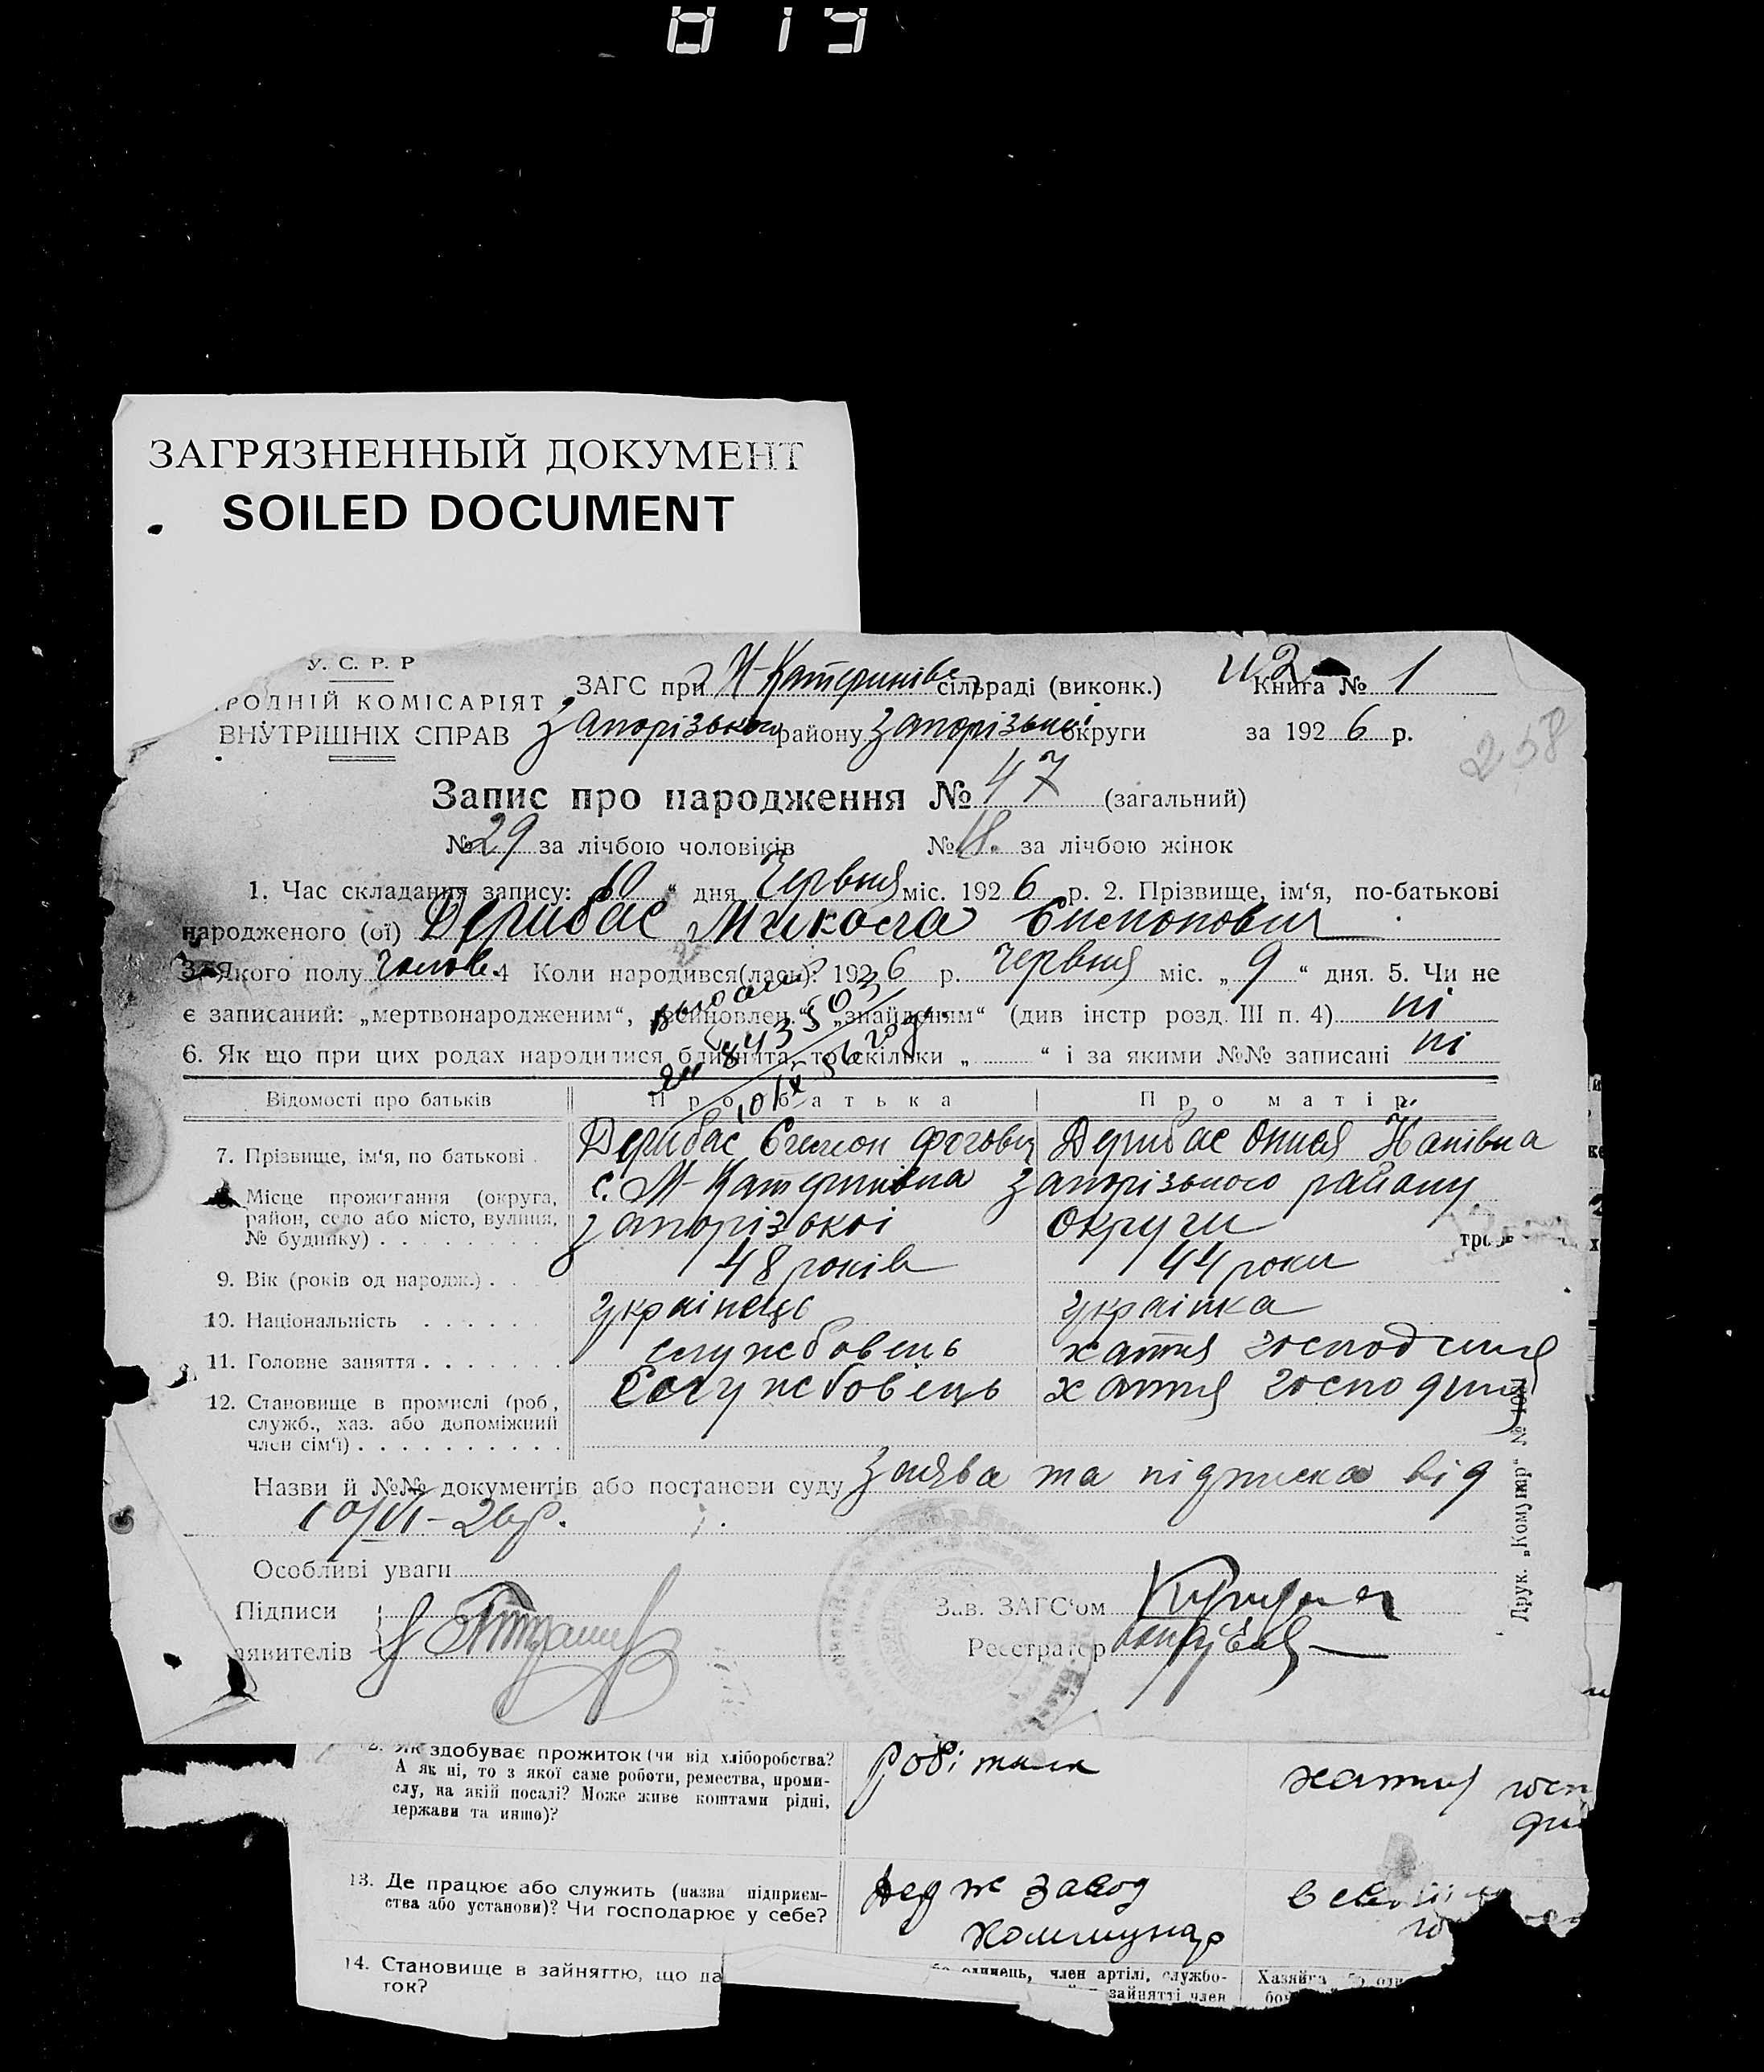 819
ЗАГРЯЗНЕННЫЙ ДОКУМЕНТ
SOILED DOCUMENT
У. С. Р. Р
РОДНІЙ КОМІСАРІЯТ
ВНУТРІШНІХ СПРАВ
ЗАГС при М-Катеринівс сільраді (виконк.)
Книга № 1
Запорізького району Запорізької округи
за 1926 р.
258
Запис про народження № 47 (загальний)
№ 29 за лічбою чоловіків № 18. за лічбою жінок
1. Час складання запису: 10 “ дня Червня міс. 1926 р. 2. Прізвище, ім‘я, по-батькові
народженого (ої) Дерибас Микола
3. Якого полу чолов. 4 Коли народився(лась)? 1926 р. червня міс. „ 9 “ дня. 5. Чи не
є записаний: „мертвонародженим“, „всиновлен.“ „знайденим“ (див інстр розд. III п. 4) ні
6. Як що при цих родах народилися близнята, то скільки „ “ і за якими №№ записані ні
Відомості про батьків
Про батька
Про матір
7. Прізвище, ім‘я, по батькові
Дерибас
Дерибас
Місце проживання (округа, район, село або місто, вулиця, № будинку)
с. М-Катеринівка Запорізького району
запорізокої округи
9. Вік (років од народж.)
48 років
44 роки
10. Національність
українець
українка
11. Головне заняття
служебовець
хатня господиня
12. Становище в промислі (роб, служб., хаз. або допоміжний член сім‘ї)
служебовець
хатня господиня
Назви й №№ документів або постанови суду Заява та підписка від
10/VI - 26 р.
Особливі уваги
Підписи
явителів
Зав. ЗАГС‘ом
Реєстратор
Друк. „Комунар“ №
Як здобуває прожиток (чи від хліборобства?
А як ні, то з якої саме роботи, ремества, проми-
слу, на якій посаді? Може живе коштами рідні,
держави та инше)?
робітник
хатня
13. Де працює або служить (назва підприєм-
ства або установи)? Чи господарює у себе?
завод
Коммунар
14. Становище в зайняттю, що да
ток?
одинець, член артілі, службо-
зайнятті член
Хазяїн